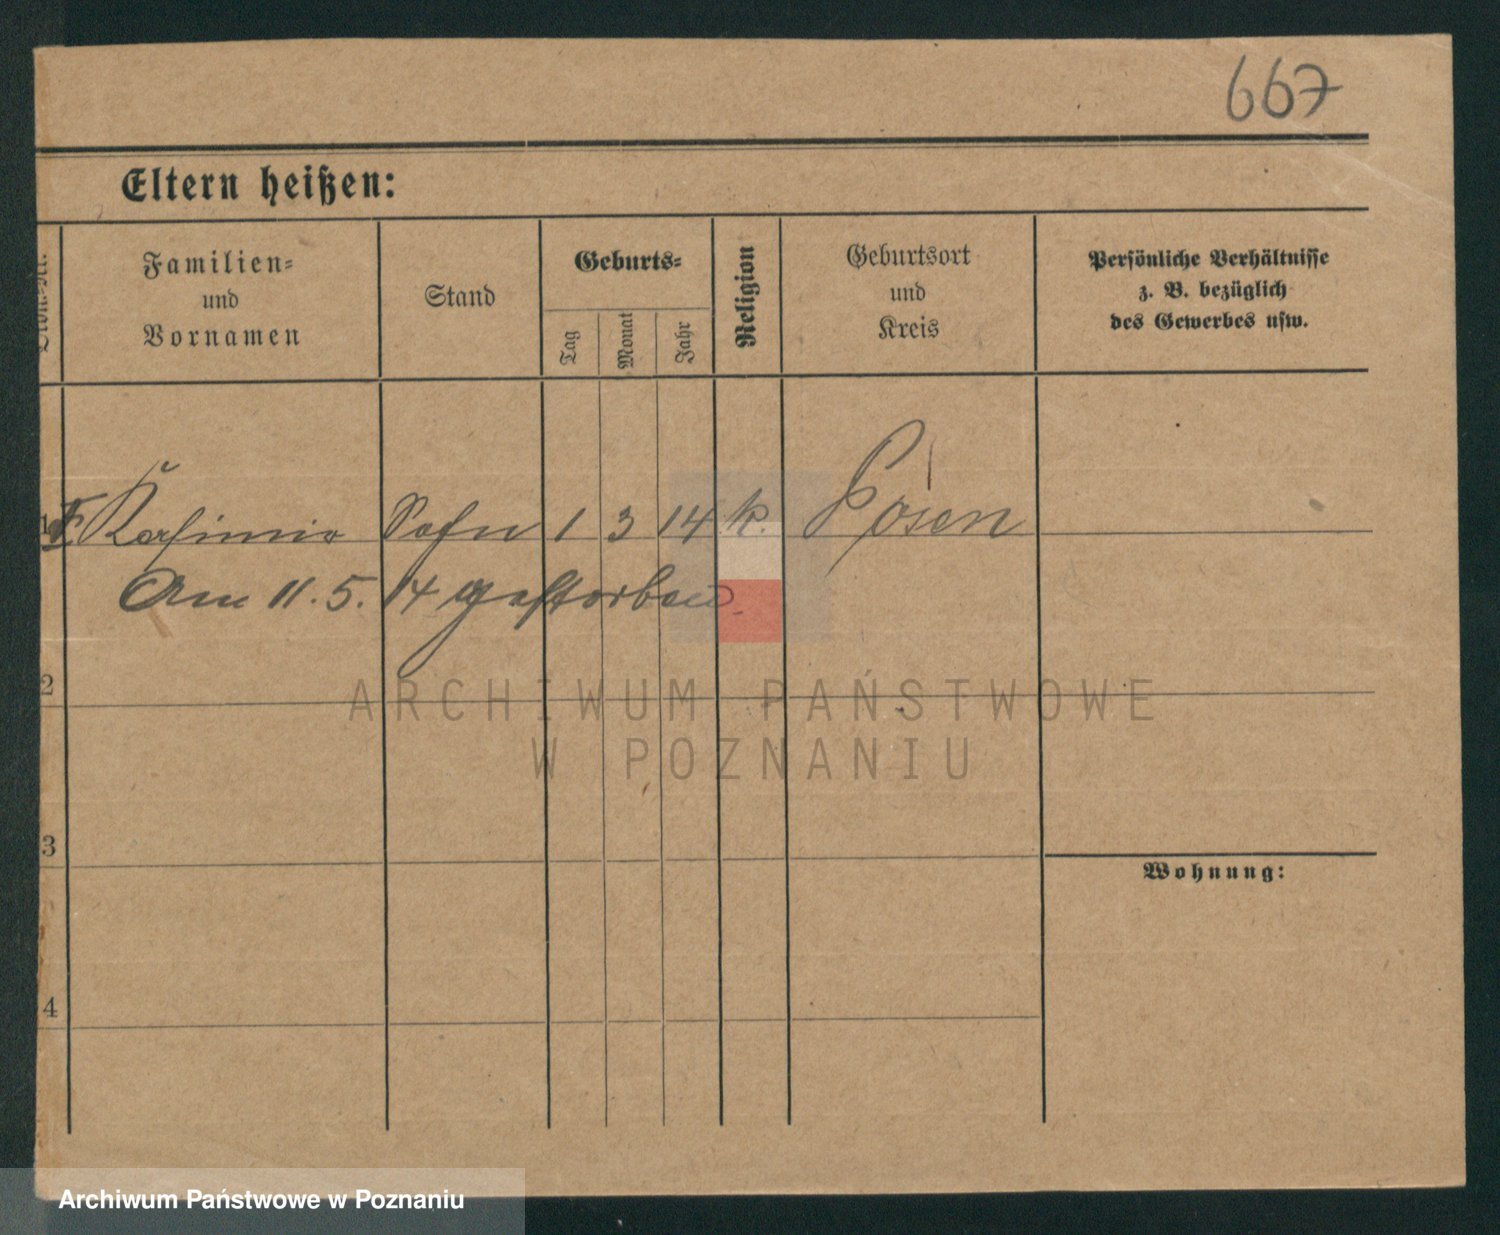 667
Eltern heißen:
Familien= und Vornamen
Stand
Geburts=
Tag
Monat
Jahr
Religion
Geburtsort und Kreis
Persönliche Verhältnisse
z. B. bezüglich
des Gewerbes usw.
1 Kasimir Sohn 1 3 14 k. Posen
Am 11.5.14 gestorben.
2
ARCHIWUM PAŃSTWOWE
W POZNANIU
3
Wohnung:
4
Archiwum Państwowe w Poznaniu